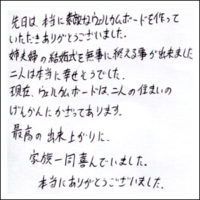 先日は、本当に素敵なウェルカムボードを作って
いただきありがとうございました。
姉夫婦の結婚式を無事に終える事が出来ました
二人は本当に幸せそうでした。
現在、ウェルカムボードは、二人の住まいの
げんかんにかざってあります。
最高の出来上がりに、
家族一同喜んでいました。
本当にありがとうございました。